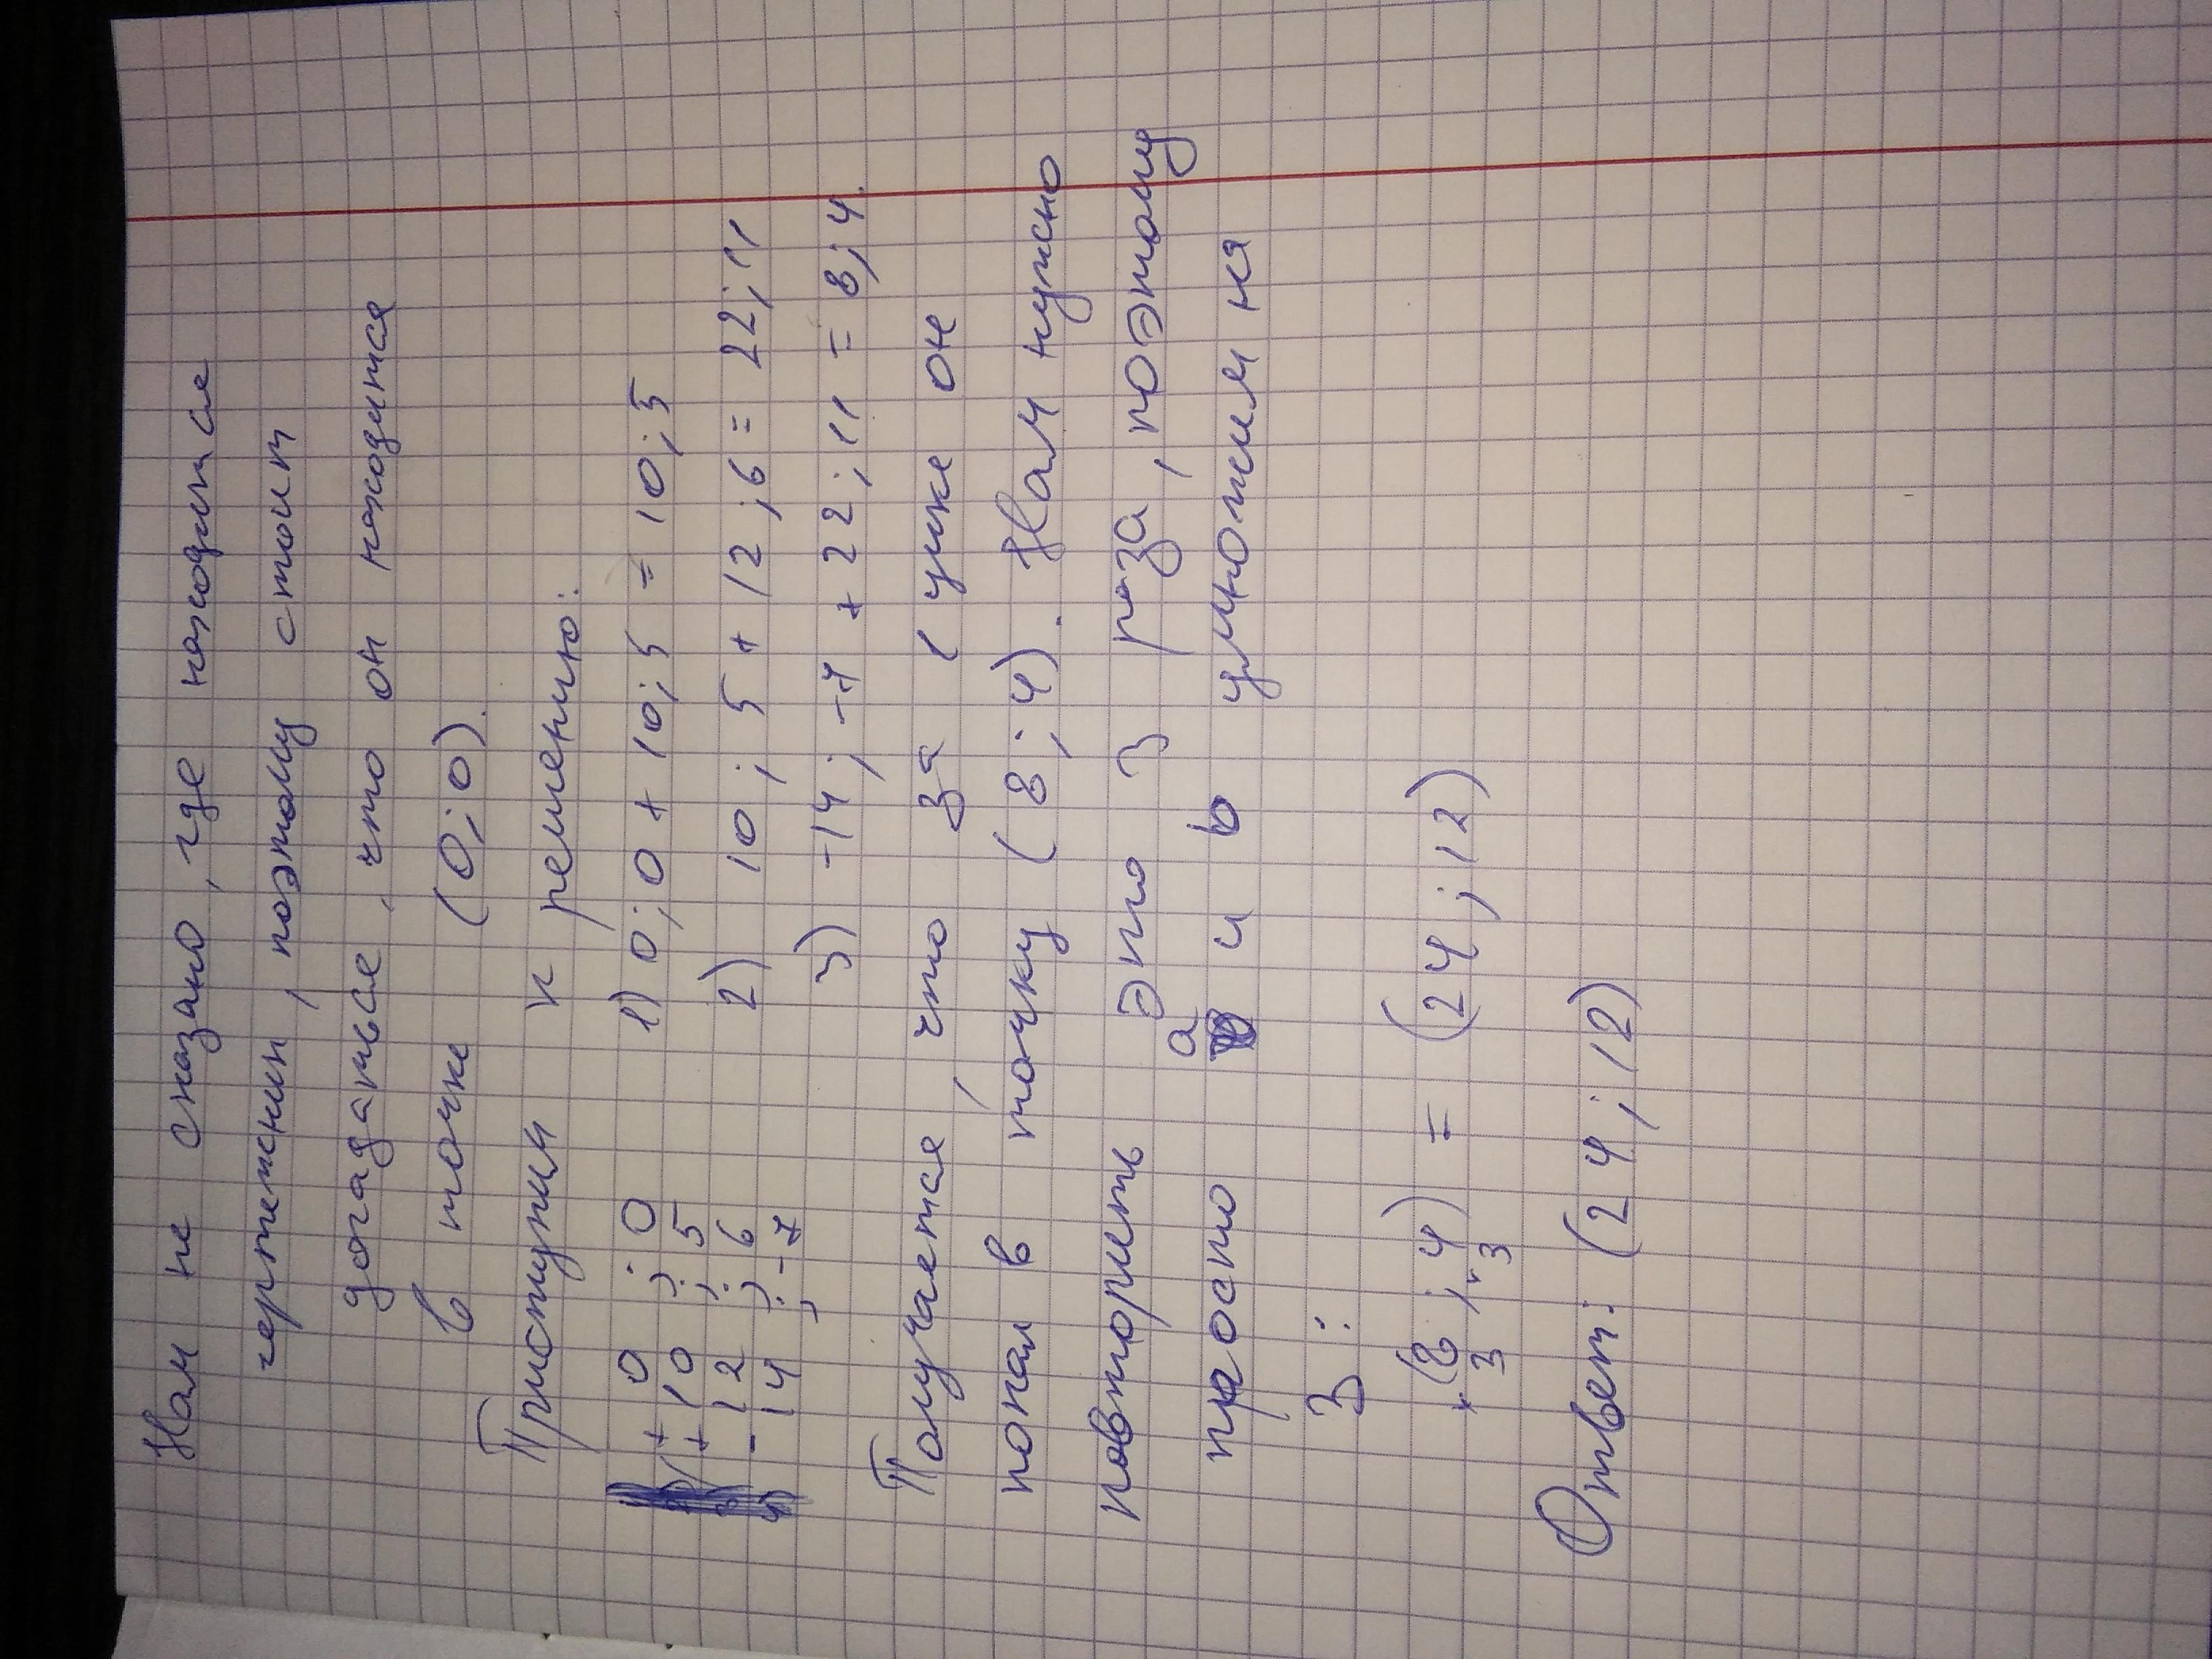 Нам не сказано, где находится
чертежник, поэтому стоит
догадаться, что он находится
в точке (0;0).
Приступим к решению:
+ 0 ; 0 1) 0;0 + 10;5 = 10;5
+ 10 ; 5 2) 10; 5 + 12;6 = 22;11
12 ; 6 3) -14; -7 + 22;11 = 8;4.
- 14 ; -7
Получается, что за 1 цикл он
попал в точку (8;4). Нам нужно
повторить это 3 раза, поэтому
просто a и b умножим на
3:
(8 ; 4) = (24;12)
3 3
Ответ: (24;12)